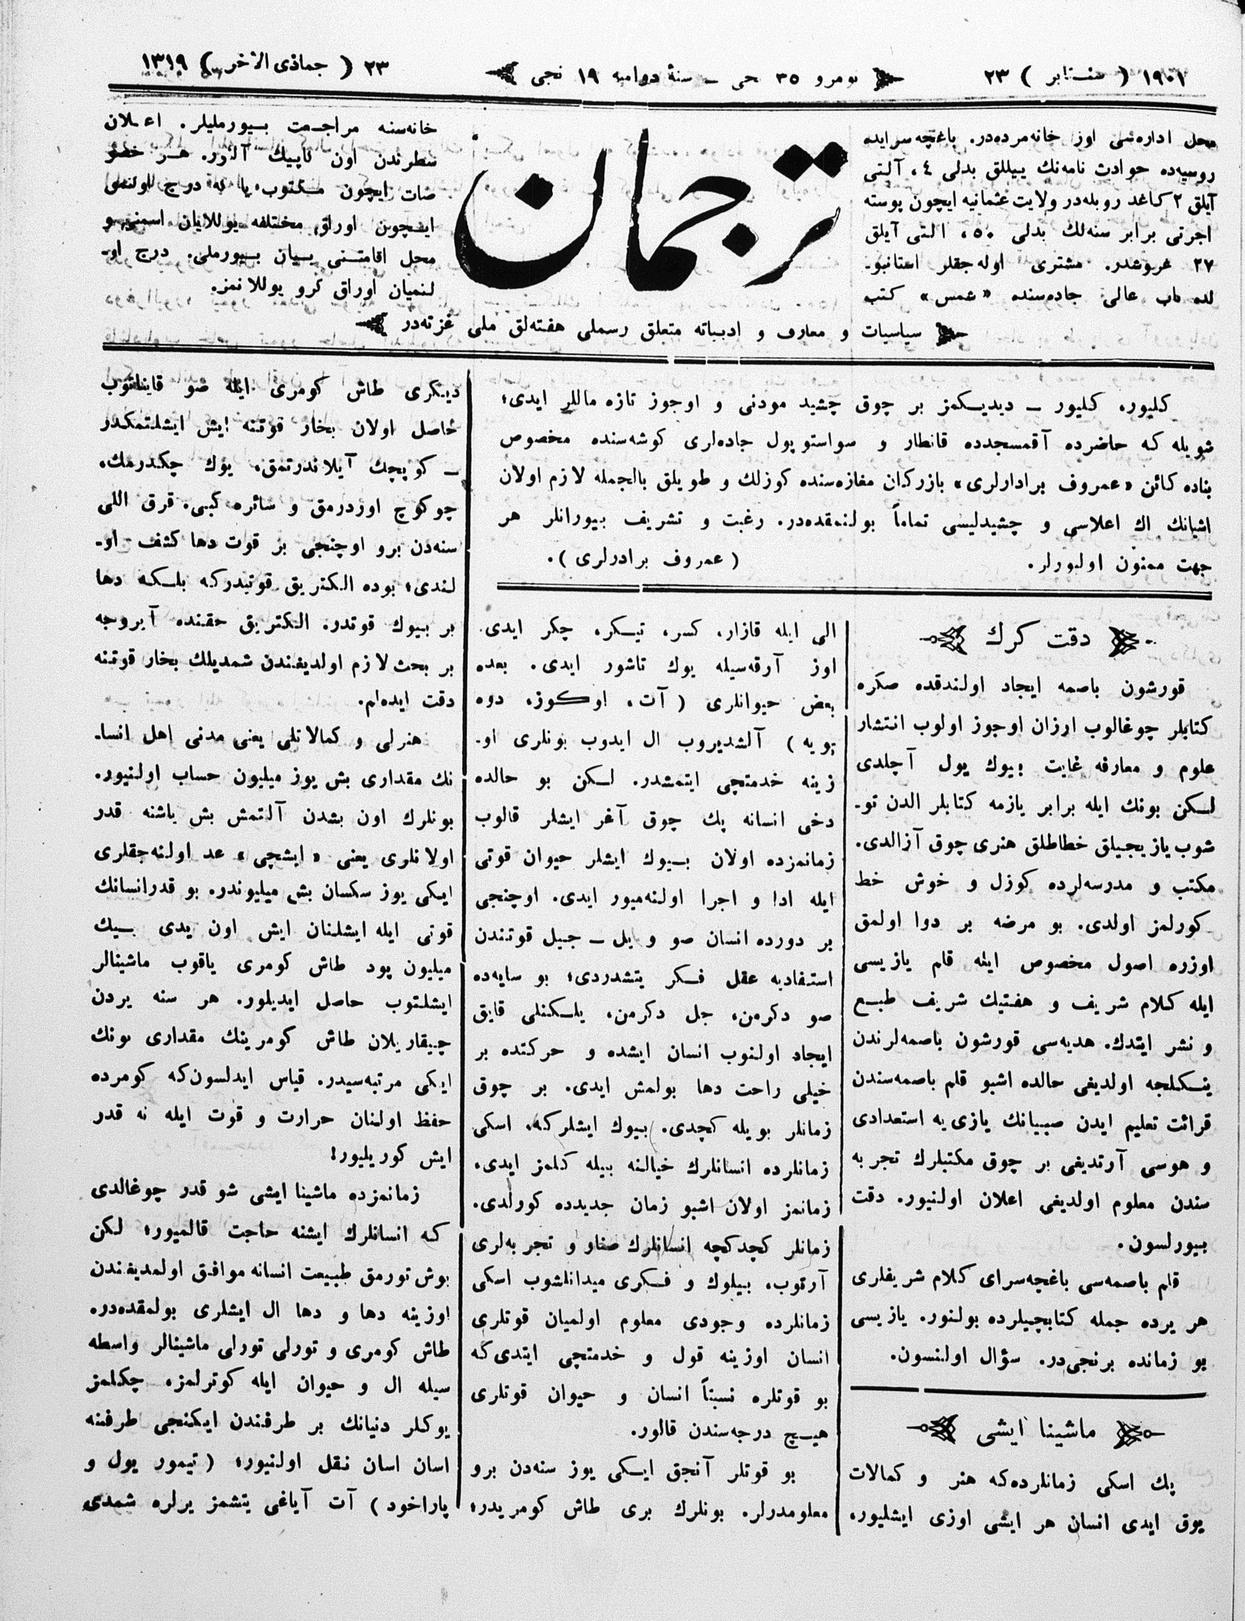 ١٩٠١ ( سنتابر ) ٢٣
نومرو ٣٥ جی ـ سنهٔ دوامیه ١٩ نجی
٢٣ ( جماذی الاخر ) ١٣١٩
محل اداره‌سی اوز خانه‌مزده‌در. باغچه‌سرایده
روسیه‌ده حوادث نامه‌نك ییللق بدلی ٤، آلتی
آیلق ٢ كاغد روبله‌در ولایت عثمانیه ایچون پوسته
اجرتی برابر سنه‌لك بدلی ٥٠، التی آیلق
٢٧ غروشدر. مشتری اوله‌جقلر استانبو‌ـ
لده باب عالی جاده‌سنده «شمس» كتب
ترجمان
خانه‌سنه مراجمت بیورملیلر. اعلان
سطرندن اون قاپیك آلنور. هر خصو
صات ایچون مكتوب یا كه درج اولنملی
ایچون اوراق مختلفه یوللایان اسمنی و
محل اقامتنی بیان بیورملی. درج او‌ـ
لنمیان اوراق كرو یوللانمز.
سیاسیات و معارف و ادبیاته متعلق رسملی هفته‌لق ملی غزته‌در
كلیور، كلیور ـ دیدیكمز بر چوق چشید مودنی و اوجوز تازه ماللر ایدی؛
شویله كه حاضرده آقمسجدده قانطار و سواستوپول جاده‌لری كوشه‌سنده مخصوص
بناده كائن «عمروف برادارلری» بازركان مغازه‌سنده كوزلك و طویلق بالجمله لازم اولان
اشیانك اك اعلاسی و چشیدلیسی تماماً بولنمقده‌در. رغبت و تشریف بیورانلر هر
جهت ممنون اولورلر.
( عمروف برادرلری ).
دقت كرك
قورشون باصمه ایجاد اولندقده صكره
كتابلر چوغالوب ارزان اوجوز اولوب انتشار
علوم و معارفه غایت بیوك یول آچلدی
لسكن بونك ایله برابر یازمه كتابلر الدن تو‌ـ
شوب یازیجیلق خطاطلق هنری چوق آزالدی.
مكتب و مدرسه‌لرده كوزل و خوش خط
كورلمز اولدی. بو مرضه بر دوا اولمق
اوزره اصول مخصوص ایله قلم یازیسی
ایله كلام شریف و هفتیك شریف طبع
و نشر ایتدك. هدیه‌سی قورشون باصمه‌لرندن
یتكلجه اولدیغی حالده اشبو قلم باصمه‌سندن
قرائت تعلیم ایدن صبیانك یازی یه استعدادی
و هوسی آرتدیغی بر چوق مكتبلرك تجربه
سندن معلوم اولدیغی اعلان اولنیور. دقت
بیورلسون.
قلم باصمه‌سی باغچه‌سرای كلام شریفلری
هر یرده جمله كتابچیلرده بولنور. یازیسی
بو زمانده برنجی‌در. سؤال اولنسون.
ماشینا ایشی
پك اسكی زمانلرده‌كه هنر و كمالات
یوق ایدی انسان هر ایشی اوزی ایشلیور،
الی ایله قازار، كسر، تیكر، چكر ایدی.
اوز آرقه‌سیله یوك تاشور ایدی. بعده
بعض حیوانلری ( آت، اوكوز، دوه
تویه ) آلشدیروب ال ایدوب بونلری او‌ـ
زینه خدمتچی ایتمشدر. لسكن بو حالده
دخی انسانه پك چوق آغر ایشلر قالوب
زمانمزده اولان بیوك ایشلر حیوان قوتی
ایله ادا و اجرا اولنه‌میور ایدی. اوچنجی
بر دورده انسان صو و یل ـ جیل قوتندن
استفادیه عقل فكر یتشدردی؛ بو سایه‌ده
صو دكرمن، جل دكرمن، یلكنلی قایق
ایجاد اولنوب انسان ایشده و حركتده بر
خیلی راحت دها بولمش ایدی. بر چوق
زمانلر بویله كچدی. بیوك ایشلر كه، اسكی
زمانلرده انسانلرك خیالنه بیله كلمز ایدی،
زمانمز اولان اشبو زمان جدیدده كورلدی.
زمانلر كچدكچه انسانلرك صناو و تجربه‌لری
آرتوب، بیلوك و فكری میدانلشوب اسكی
زمانلرده وجودی معلوم اولمیان قوتلری
انسان اوزینه قول و خدمتچی ایتدی‌كه
بو قوتلره نسبتاً انسان و حیوان قوتلری
هیچ درجه‌سندن قالور.
بو قوتلر آنجق ایكی یوز سنه‌دن برو
معلومدرلر. بونلرك بری طاش كومریدر؛
دیكری طاش كومری ایله صو قایناتوب
حاصل اولان بخار قوتنه ایش ایشلتمكدر
ـ كوپچك آیلاندرتمق، یوك چكدرمك،
چوكوچ اوزدرمق و سائره كبی. قرق اللی
سنه‌دن برو اوچنجی بر قوت دها كشف او‌ـ
لندی؛ بوده الكتریق قوتیدركه بلكه دها
بر بیوك قوتدر. الكتریق حقنده آیروجه
بر بحث لازم اولدیغندن شمدیلك بخار قوتنه
دقت ایده‌لم.
هنرلی و كمالاتلی یعنی مدنی اهل انسا‌ـ
نك مقداری بش یوز میلیون حساب اولنیور.
بونلرك اون بشدن آلتمش بش یاشنه قدر
اولانلری یعنی «ایشچی» عد اولنه‌جقلری
ایكی یوز سكسان بش میلیوندر. بو قدر انسانك
قوتی ایله ایشلنان ایش اون یدی بیك
میلیون پود طاش كومری یاقوب ماشینالر
ایشلتوب حاصل ایدیلور. هر سنه یردن
چیقاریلان طاش كومرینك مقداری بونك
ایكی مرتبه‌سیدر. قیاس ایدلسون‌كه كومرده
حفظ اولنان حرارت و قوت ایله نه قدر
ایش كوریلیور!
زمانمزده ماشینا ایشی شو قدر چوغالدی
كه انسانلرك ایشنه حاجت قالمیور؛ لكن
بوش تورمق طبیعت انسانه موافق اولمدیغندن
اوزینه دها و دها ال ایشلری بولمقده‌در.
طاش كومری و تورلی تورلی ماشینالر واسطه
سیله ال و حیوان ایله كوترلمز، چكلمز
یوكلر دنیانك بر طرفندن ایكنجی طرفنه
اسان اسان نقل اولنیور؛ ( تیمور یول و
پاراخود ) آت آیاغی یتشمز یرلره شمدی